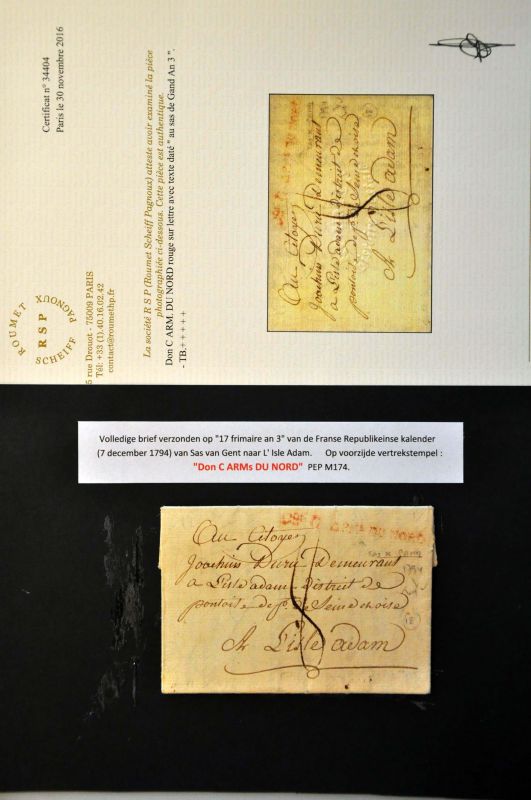 Certificat n° 34404
Paris le 30 novembre 2016
La société R S P (Roumet Scheiff Pagnoux) atteste avoir examiné la pièce
photographiée ci-dessous. Cette pièce est authentique.
Don C ARM. DU NORD rouge sur lettre avec texte daté " au sas de Gand An 3 ".
- TB.+++++
ROUMET
PAGNOUX
R S P
SCHEIFF
5 rue Drouot - 75009 PARIS
Tél: +33 (1).40.16.02.42
contact@roumethp.fr
Au Citoyen
Joachuis Duru Demeurant
a Lisle adam district de
pontoise dept. de Seine et oise
A Lisle adam
Volledige brief verzonden op "17 frimaire an 3" van de Franse Republikeinse kalender
(7 december 1794) van Sas van Gent naar L' Isle Adam. Op voorzijde vertrekstempel :
"Don C ARMs DU NORD" PEP M174.
ARMs DU NORD
Au Citoyen
Joachuis Duru Demeurant
a Lisle adam district de
pontoise dept. de Seine et oise
A Lisle adam
1794
18